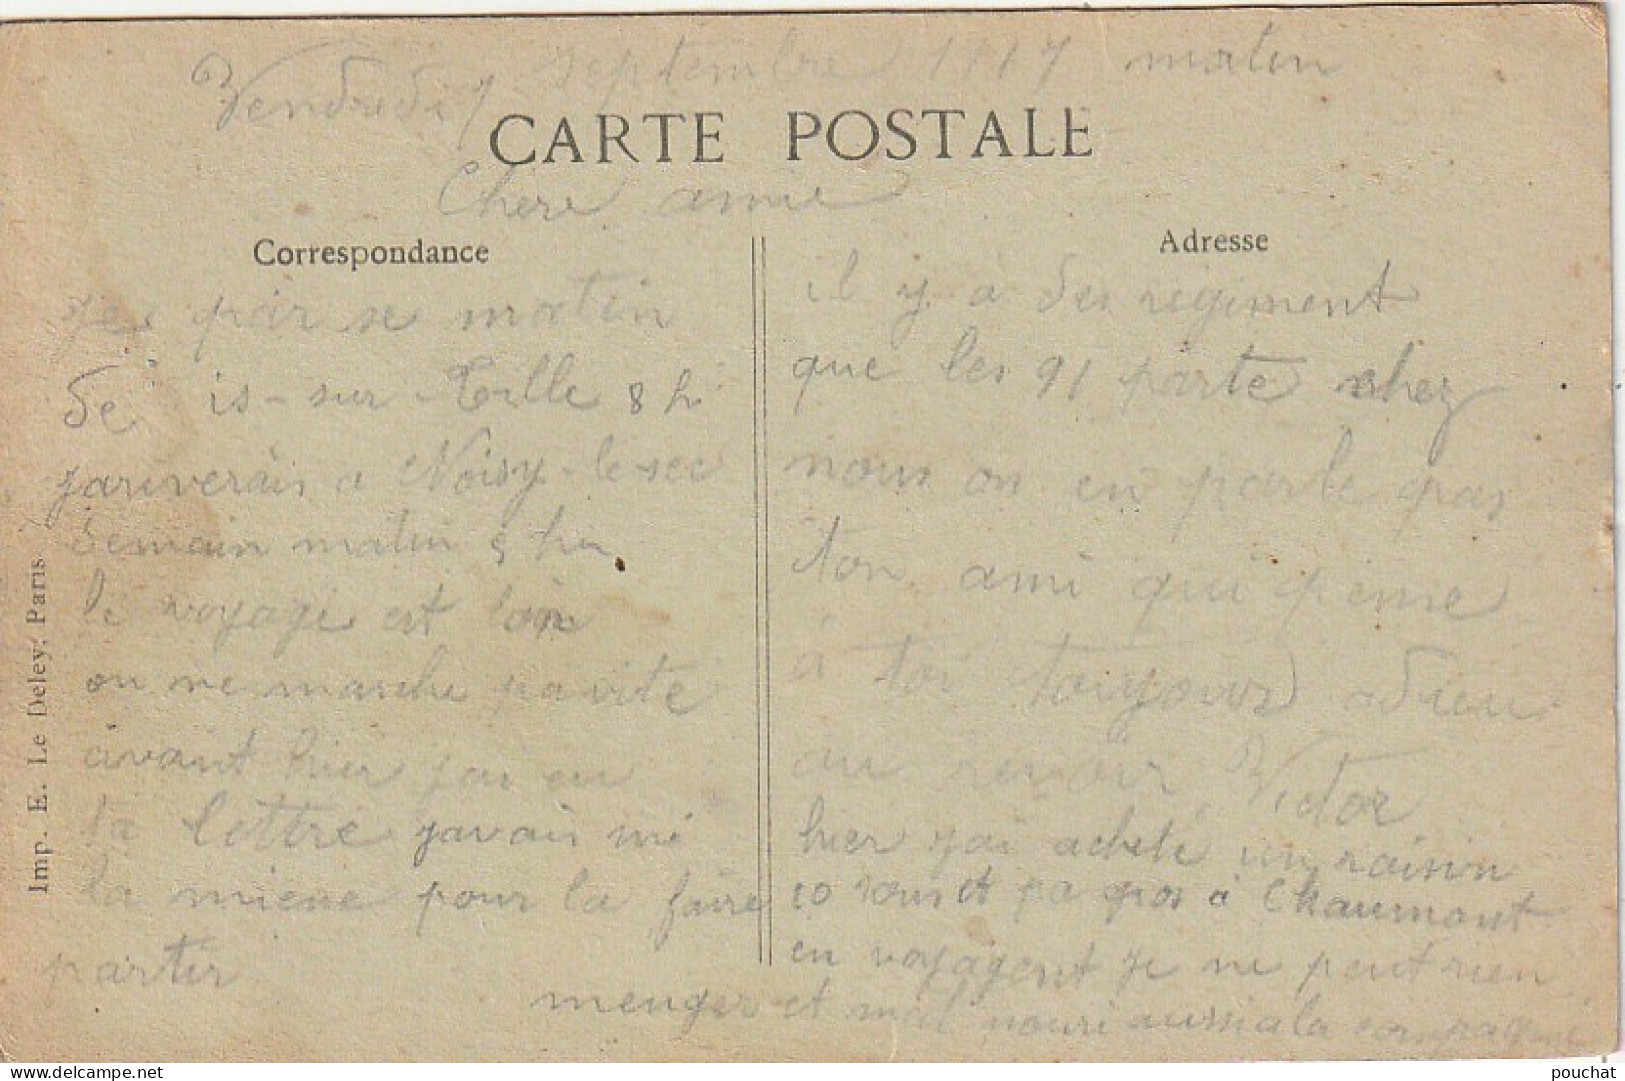 Vendredi 7 septembre 1917 matin
CARTE POSTALE
Chere amie
Correspondance
Je par se matin
de is-sur-Tille 8 h
jariverais a Noisy-le-sec
demain matin 5 hu
le voyage est loin
on ne marche pa vite
avant hier jai eu
ta lettre javais mi
la miene pour la faire
partir
Adresse
il y a des regiment
que les 91 parte chez
nous on en parle pas
ton ami qui pense
à toi toujours adieu
au revoir Victor
hier jai acheté un raisin
10 sous et pa gros à Chaumont
en voyagent je ne peut rien
menger et mal nouri aussi a la compagnie
Imp. E. Le Deley, Paris
pouchat